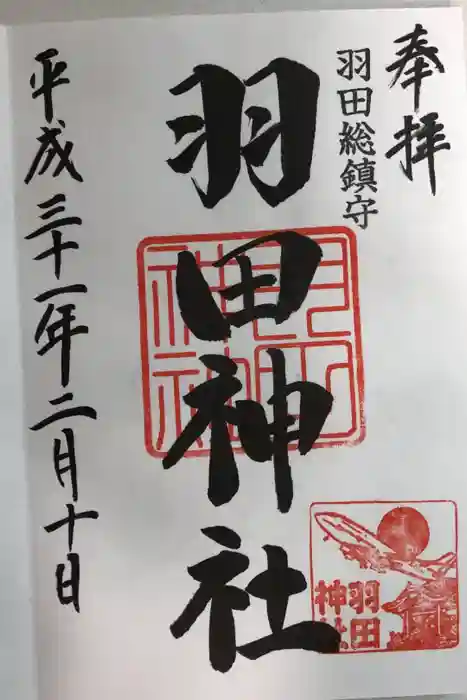 奉拝
羽田総鎮守
羽田神社
羽田神社
平成三十一年二月十日
羽田
神社